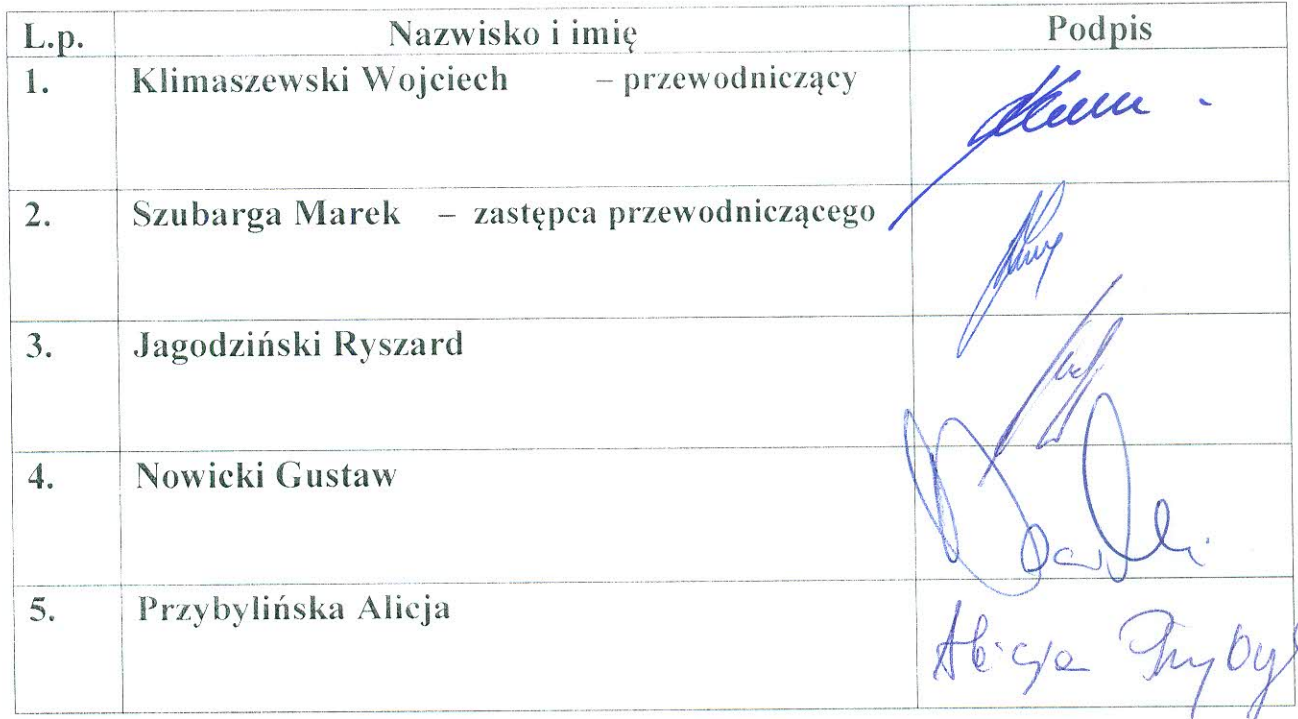 L.p. Nazwisko i imię Podpis
1. Klimaszewski Wojciech – przewodniczący
2. Szubarga Marek – zastępca przewodniczącego
3. Jagodziński Ryszard
4. Nowicki Gustaw
5. Przybylińska Alicja Alicja